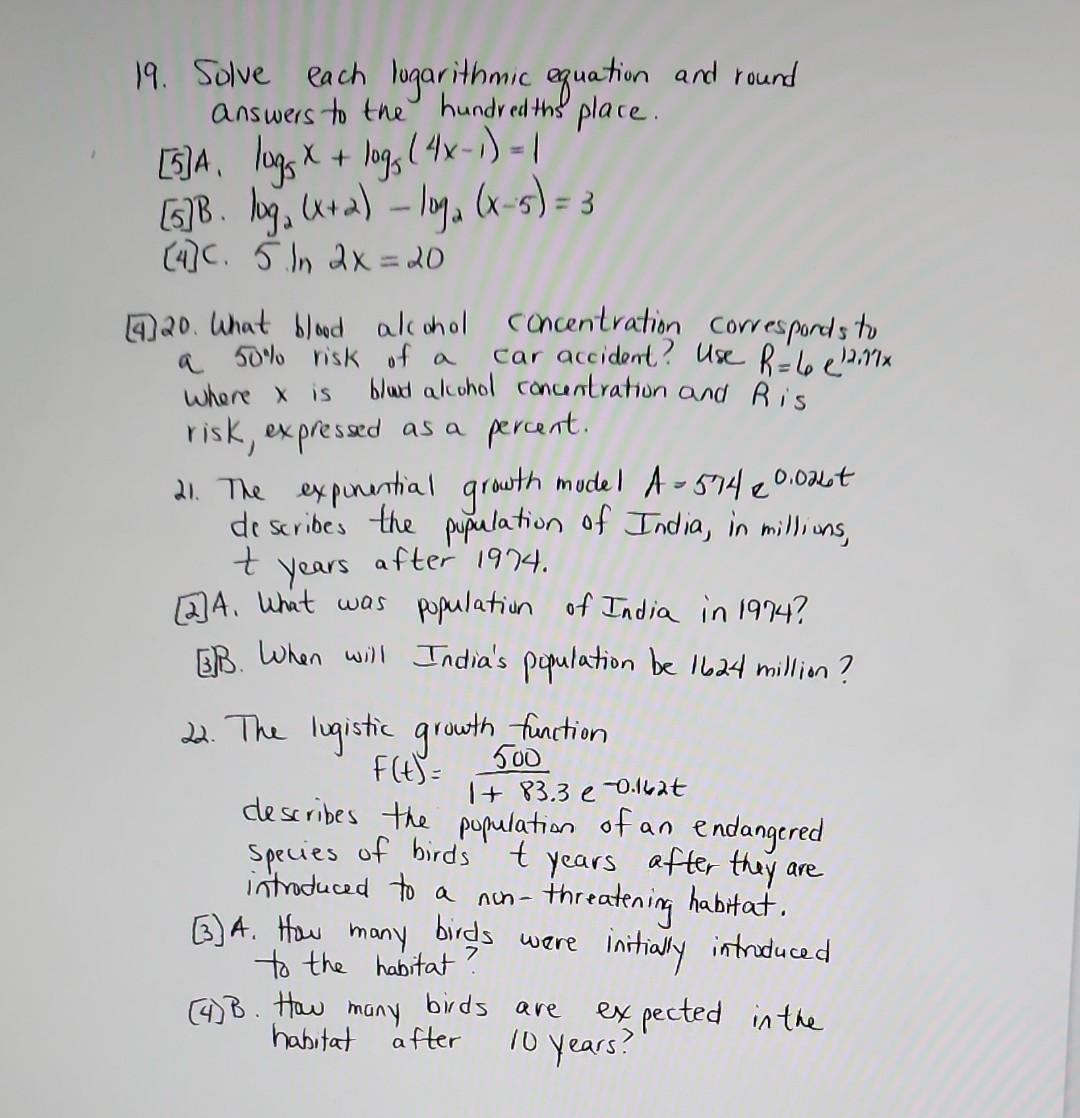 19. Solve each logarithmic equation and round
answers to the hundredths place.
[5]A. log₅ x + log₅ (4x-1) = 1
[5]B. log₂ (x+2) - log₂ (x-5) = 3
[4]C. 5 ln 2x = 20
[4]20. What blood alcohol concentration corresponds to
a 50% risk of a car accident? Use R = 6 e^12.77x
where x is blood alcohol concentration and R is
risk, expressed as a percent.
21. The exponential growth model A = 574 e^0.026t
describes the population of India, in millions,
t years after 1974.
[2]A. What was population of India in 1974?
[3]B. When will India's population be 1624 million?
22. The logistic growth function
F(t) = 500 / 1 + 83.3 e^-0.162t
describes the population of an endangered
species of birds t years after they are
introduced to a non-threatening habitat.
[3]A. How many birds were initially introduced
to the habitat?
[4]B. How many birds are expected in the
habitat after 10 years?